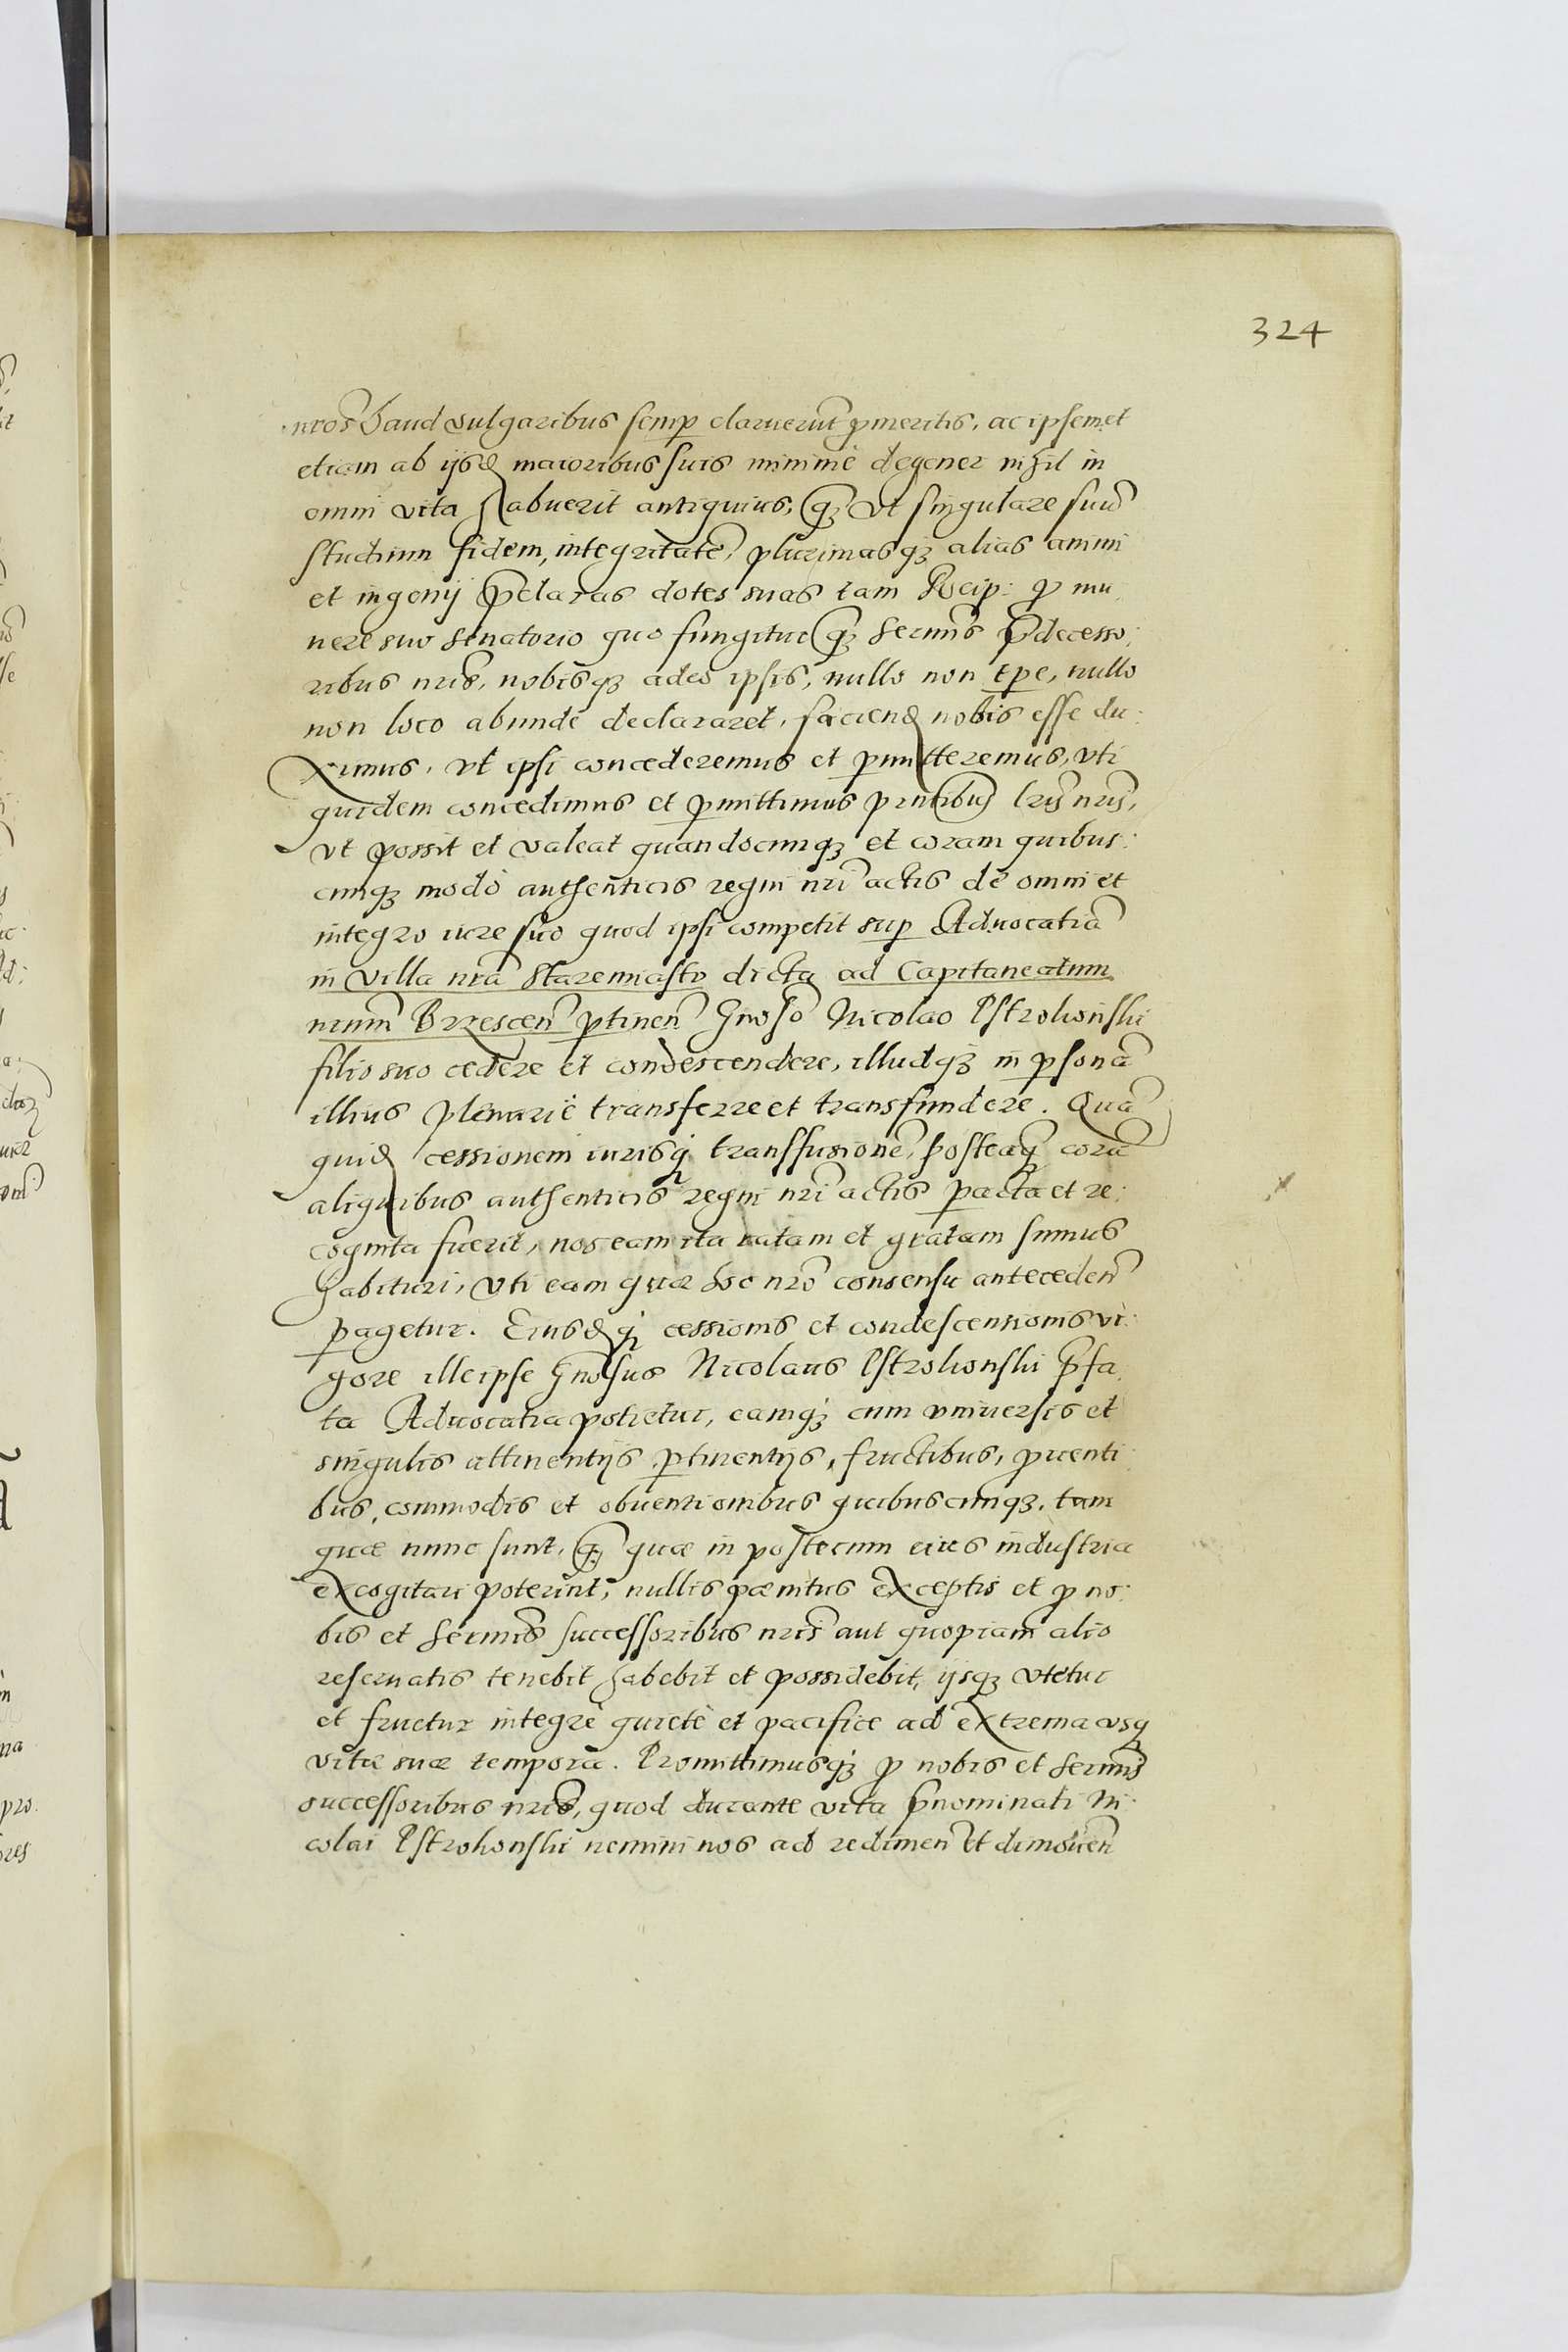 324
nros haud vulgaribus semp claruerūt pmeritis, ac ipsemet
etiam ab ijsd maioribus suis minimè degener nihil in
omni vita habuerit antiquius, q̃ vt singulare suū
studium fidem, integritatē, plurimasq; alias animi
et ingenij p̄claras dotes suas tam Reip: p mu
nere suo senatorio quo fungitur q̃ Sermis p̄decesso:
ribus nris, nobisq; adeo ipsis, nullo non tpe, nullo
non loco abunde declararet, faciend nobis esse du:
ximus, vt ipsi concederemus et pmitteremus, vti
quidem concedimus et pmittimus pntibus lris nris,
vt possit et valeat quandocunq; et coram quibus:
cunq; modò authenticis regni nri actis de omni et
integro iure suo quod ipsi competit sup Aduocatiā
in villa nrā Staremiasto dicta ad Capitaneatum
nrum Brzescen̄ ptinen̄ Gnoso Nicolao Ostrohonski
filio suo cedere et condescendere, illudq; in psonā
illius plenariè transferre et transfundere. Quā
quid cessionem iurisq transfusionē, posteaq̃ corā
aliquibus authenticis regni nri actis pacta et re:
cognita fuerit, nos eam ita ratam et gratam sumus
habituri, vti eam quæ hoc nrō consensu anteceden̄
pagetur. Eiusd q cessionis et condescensionis vi:
gore ille ipse Gnosus Nicolaus Ostrohonski p̄fa
ta Aduocatia potietur, eamq; cum vniuersis et
singulis attinentijs ptinentijs, fructibus, puenti
bus, commodis et obuentionibus quibuscunq;, tam
quæ nunc sunt, q̃ quæ in posterum eius industria
excogitari poterint, nullis pænitus exceptis et p no:
bis et Sermis successoribus nris aut quopiam alio
reseruatis tenebit habebit et possidebit, ijsq; vtetur
et fruetur integrè quietè et pacifice ad extrema vsq
vitæ suæ tempora. Promittimusq; p nobis et Sermis
successoribus nris, quod durante vita p̄nominati Ni:
colai Ostrohonski nemini nos ad redimen̄ et dimouen̄